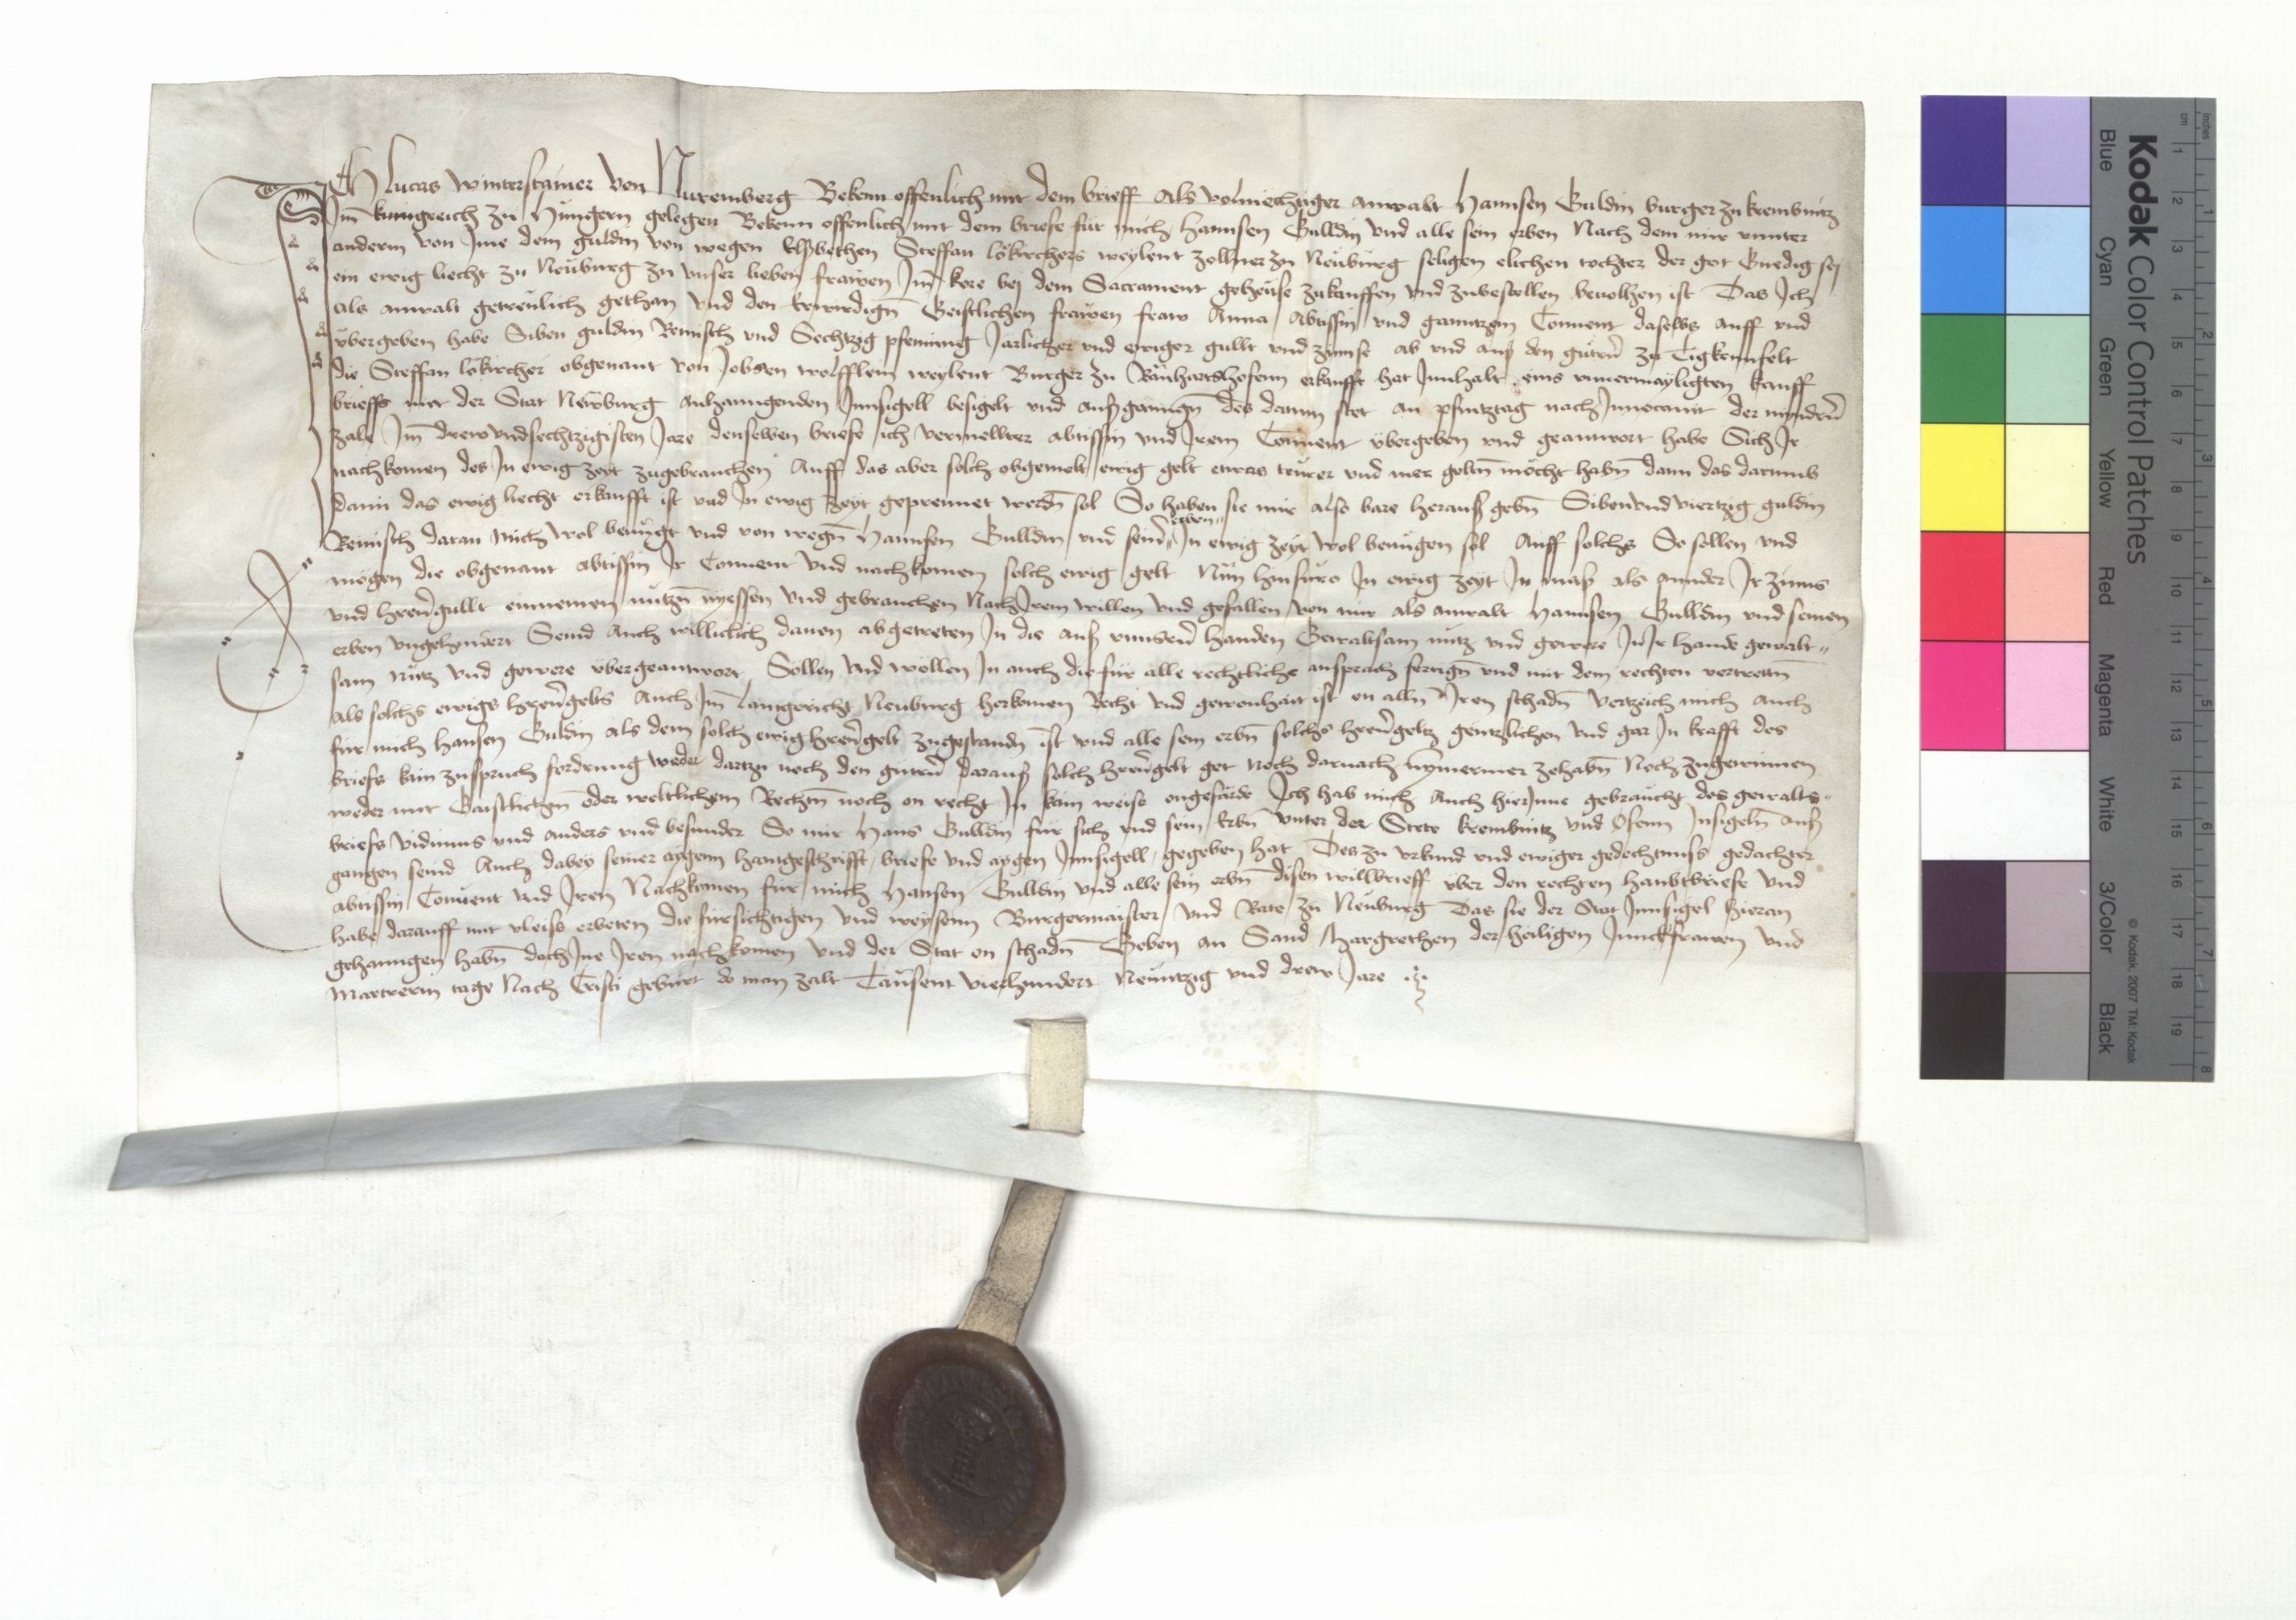 ICH lucas winterstainer von Nuremberg Bekenn offenlich mit dem brieff Als volmechtiger anwalt Hannsen Guldin burger zu krembnitz
Im kunigreich zu Hungern gelegen Bekenn offenlich mit dem briefe für mich Hannsen Gulldin und alle sein erben Nach dem mir vnnter
anderm von Jme dem guldin von wegen Elsbethen Steffan lökirchers weylent zollner zu Neuburg seligen elichen tochter der got Gnedig sey
ein ewig liecht zu Neuburg zu vnser lieben frawen Jm kore bej dem Sacrament geheuse zukauffen vnd zubestellen beuolhen ist Das Jch
als anwalt getreulich gethan vnd den Erwirdign Geistlichen frawen fraw Anna Abtissin vnd gantzem Conuent daselbs auff vnd
übergeben habe Siben guldin Reinisch vnd Sechtzig pfenning Järlicher vnd ewiger güllt vnd zinnse ab vnd auß den gütern zu
die Steffan lökircher obgenant von Jobsten wolfflein weylent Burger zu erkaufft hat Jnnhalt eins vnuermayligten kauff
brieffs mit der Stat Newburg anhanngenden Jnnsigell besigelt vnd außganngn des datum stet an pfintztag nach Jnuocauit der mindern
zale Jm drewvndsechtzigisten Jare denselben briefe ich vermellter abtissin vnd Jrem Conuent übergeben vnd geantwort habe Sich Jr
nachkomen des Jn ewig zeyt zugebrauchen Auff das aber solch obgemelt ewig gelt etwas teurer vnd mer geltn möcht habn dann das darumb
dann das ewig liecht erkaufft ist vnd Jn ewig zeyt geprennet werdn sol So haben sie mir also bare herauß gebn Sibenvndviertzig guldin
Reinisch daran mich wol benügt vnd von wegn Hannsen Gulldin vnd seinn erben Jn ewig zeyt wol benügen sol Auff solchs So sollen vnd
mögen die obgenant abtissin Jr Conuent vnd nachkomen solch ewig gelt Nun hinfüro Jn ewig zeyt Jn maß als annder Jr zinns
vnd herrngüllt einnemen nützn nyessen vnd gebrauchen Nach Jrem willen vnd gefallen von mir als anwalt Hannsen Gulldin vnd seinen
erben vngehindert Seind Auch williclich dauon abgetreten Jn die auß vnnsern handen Gewaltsam nütz vnd gewere Jn Jr hande gewalt-
sam nütz vnd gewere übergeantwort Sollen vnd wöllen Jn auch die für alle rechtliche ansprach fertign vnd mit dem rechten vertrettn
Als solchs ewigs herrngelts Auch Jm lantgericht Neuburg herkomen Recht vnd gewonhait ist on alln Jren schadn Vertzeich mich Auch
für mich Hansen Guldin als dem solch ewig herrngelt zugestandn ist vnd alle sein erbn solchs herrngeltz gentzlichen vnd gar Jn krafft des
briefs kain zuspruch fordrung weder dartzu noch den gütern darauß solch herrngelt get noch darnach nymermer zehabn Noch zugewinnen
weder mit Gaistlichen oder weltlichem Rechtn noch on recht Jn kain weise ongeferde Jch hab mich Auch hierJnne gebraucht des gewalts-
briefs vidimus vnd anders vnd besunder So mir Hans Gulldin für sich vnd sein Erbn vnter der Stete krembnitz vnd Ofenn Jnsigeln auß
gangen seind Auch dabey seiner aygenn hantgeschrifft briefe vnd aygen Jnnsigell gegeben hat Des zu vrkund vnd ewiger gedechtnuss gedachter
abtissin Conuent vnd Jren Nachkomen für mich Hansen Gulldin vnd alle sein erbn disen willbrieff über den rechten haubtbriefe vnd
habe darauff mit vleiss erbeten die fürsichtigen vnd weysenn Burgermaister vnd Rate zu Neuburg Das sie der Stat Jnnsigel hieran
gehanngen habn doch Jne Jren nachkomen vnd der Stat on schadn Geben an Sand Margrethen der heiligen Junckfrawen vnd
Martrerin tage Nach Cristi geburt do man zalt Tausent vierhundert Neuntzig vnd drew Jare
Kodak Color Control Patches
Blue Cyan Green Yellow Red Magenta White 3/Color Black
© Kodak, 2007 TM: Kodak
cm 1 2 3 4 5 6 7 8 9 10 11 12 13 14 15 16 17 18 19
inches 1 2 3 4 5 6 7 8